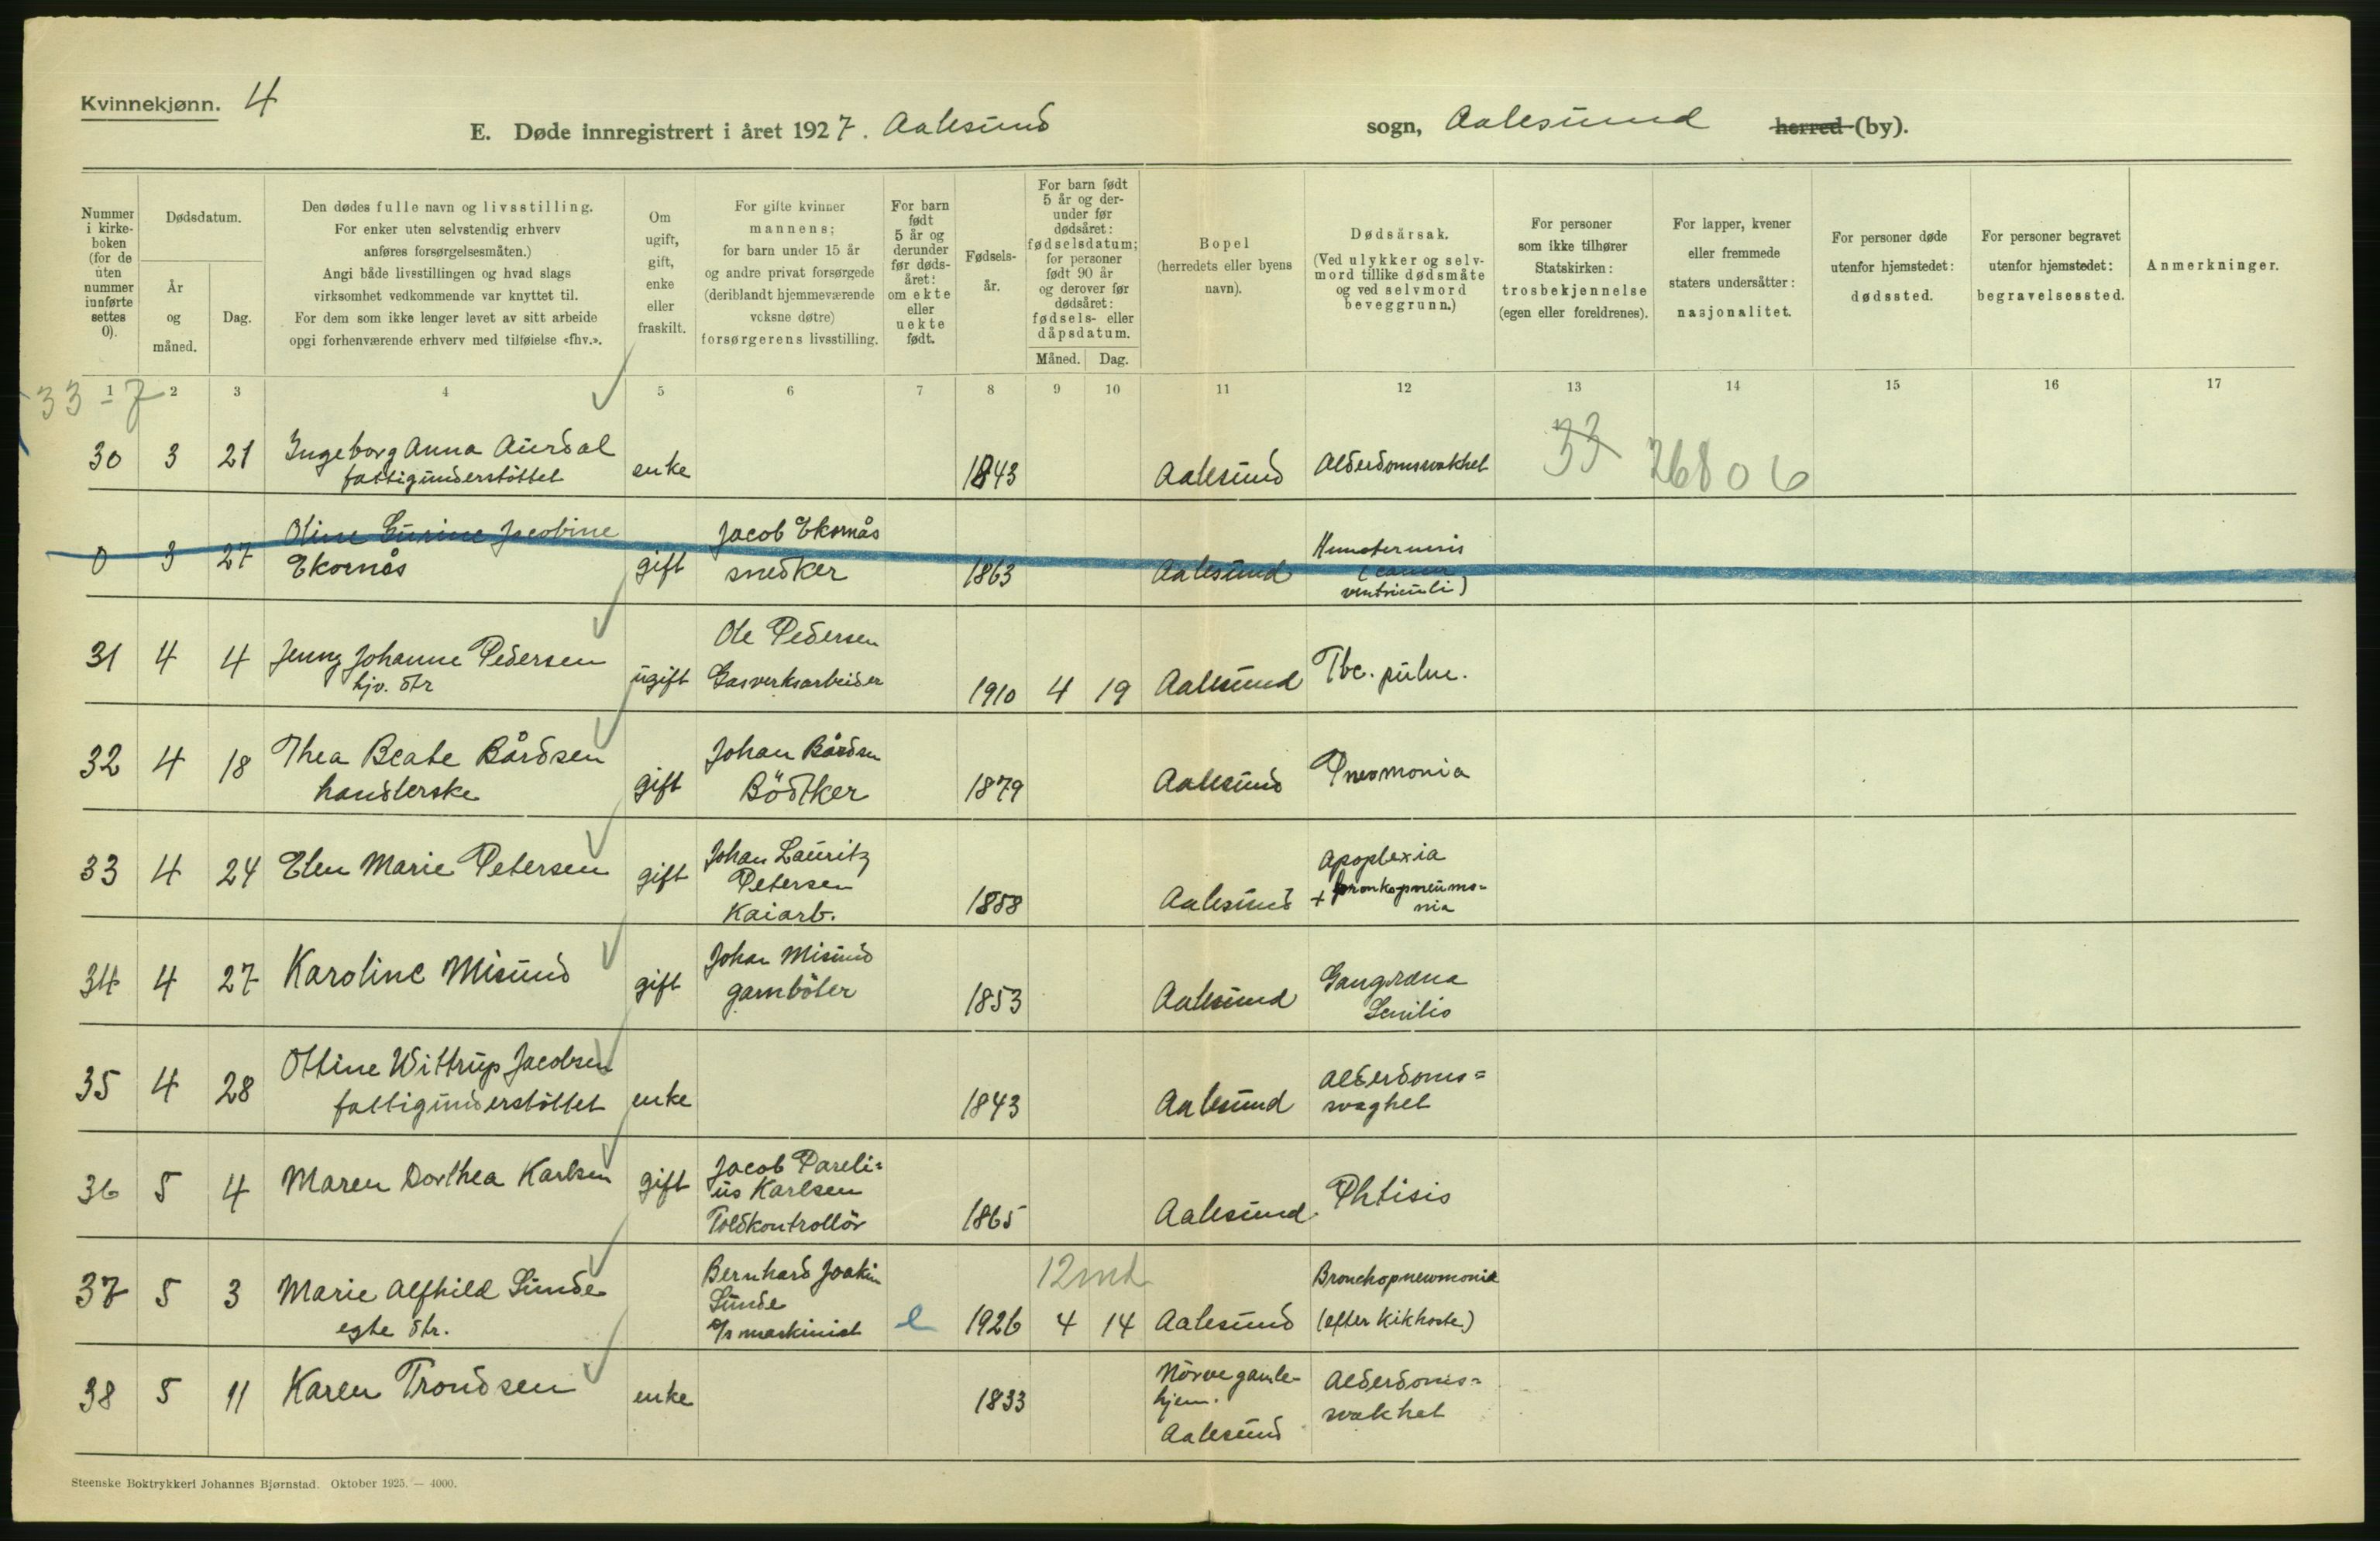 Kvinnekjønn. 4
E. Døde innregistrert i året 1927. Aalesund sogn, Aalesund herred (by).
Nummer i kirkeboken (for de uten nummer innførte settes 0).
Dødsdatum.
År og måned.
Dag.
Den dødes fulle navn og livsstilling.
For enker uten selvstendig erhverv
anføres forsørgelsesmåten.)
Angi både livsstillingen og hvad slags
virksomhet vedkommende var knyttet til.
For dem som ikke lenger levet av sitt arbeide
opgi forhenværende erhverv med tilføielse «fhv.».
Om ugift, gift, enke eller fraskilt.
For gifte kvinner
mannens;
for barn under 15 år
og andre privat forsørgede
(deriblandt hjemmeværende
voksne døtre)
forsørgerens livsstilling.
For barn født 5 år og derunder før dødsåret: om ekte eller uekte født.
Fødselsår.
For barn født
5 år og derunder før
dødsåret:
fødselsdatum;
for personer
født 90 år
og derover før
dødsåret:
fødsels- eller
dåpsdatum.
Måned. Dag.
Bopel
(herredets eller byens
navn).
Dødsårsak.
(Ved ulykker og selvmord tillike dødsmåte
og ved selvmord
beveggrunn.)
For personer
som ikke tilhører
Statskirken:
trosbekjennelse
(egen eller foreldrenes).
For lapper, kvener
eller fremmede
staters undersåtter:
nasjonalitet.
For personer døde
utenfor hjemstedet:
dødssted.
For personer begravet
utenfor hjemstedet:
begravelsessted.
Anmerkninger.
1 2 3 4 5 6 7 8 9 10 11 12 13 14 15 16 17
33 - 7
30 3 21 Ingeborg Anna Aurdal
fattigunderstöttet enke 1843 Aalesund Alderdomsvakhet 33 26806
0 3 27 Oline Eurine Jacobine
Ekornås gift Jacob Ekornås
snedker 1863 Aalesund Hematemesis
(cancer
ventriculi)
31 4 4 Jenny Johanne Pedersen
hjv. dtr ugift Ole Pedersen
Gasverksarbeider 1910 4 19 Aalesund Tbc. pulm.
32 4 18 Thea Beate Bårdsen
handlerske gift Johan Bårdsen
Bödtker 1879 Aalesund Pneomonia
33 4 24 Elen Marie Petersen gift Johan Lauritz
Petersen
Kaiarb. 1858 Aalesund Apoplexia
+ bronkopneumo=
nia
34 4 27 Karoline Misund gift Johan Misund
garnböter 1853 Aalesund Gangræna
Senilis
35 4 28 Ottine Wittrup Jacobsen
fattigunderstöttet enke 1843 Aalesund Alderdoms=
svaghet
36 5 4 Maren Dorthea Karlsen gift Jacob Pareli=
us Karlsen
Toldkontrollör 1865 Aalesund Phtisis
37 5 3 Marie Alfhild Sunde
egte dtr. Bernhard Joakim
Sunde
d/s maskinist e 1926 12 md 4 14 Aalesund Bronchopneumonia
(efter Kikhoste)
38 5 11 Karen Trondsen enke 1833 Nörve gamle-
hjem.
Aalesund Alderdoms=
svakhet
Steenske Boktrykkeri Johannes Bjørnstad. Oktober 1925. — 4000.